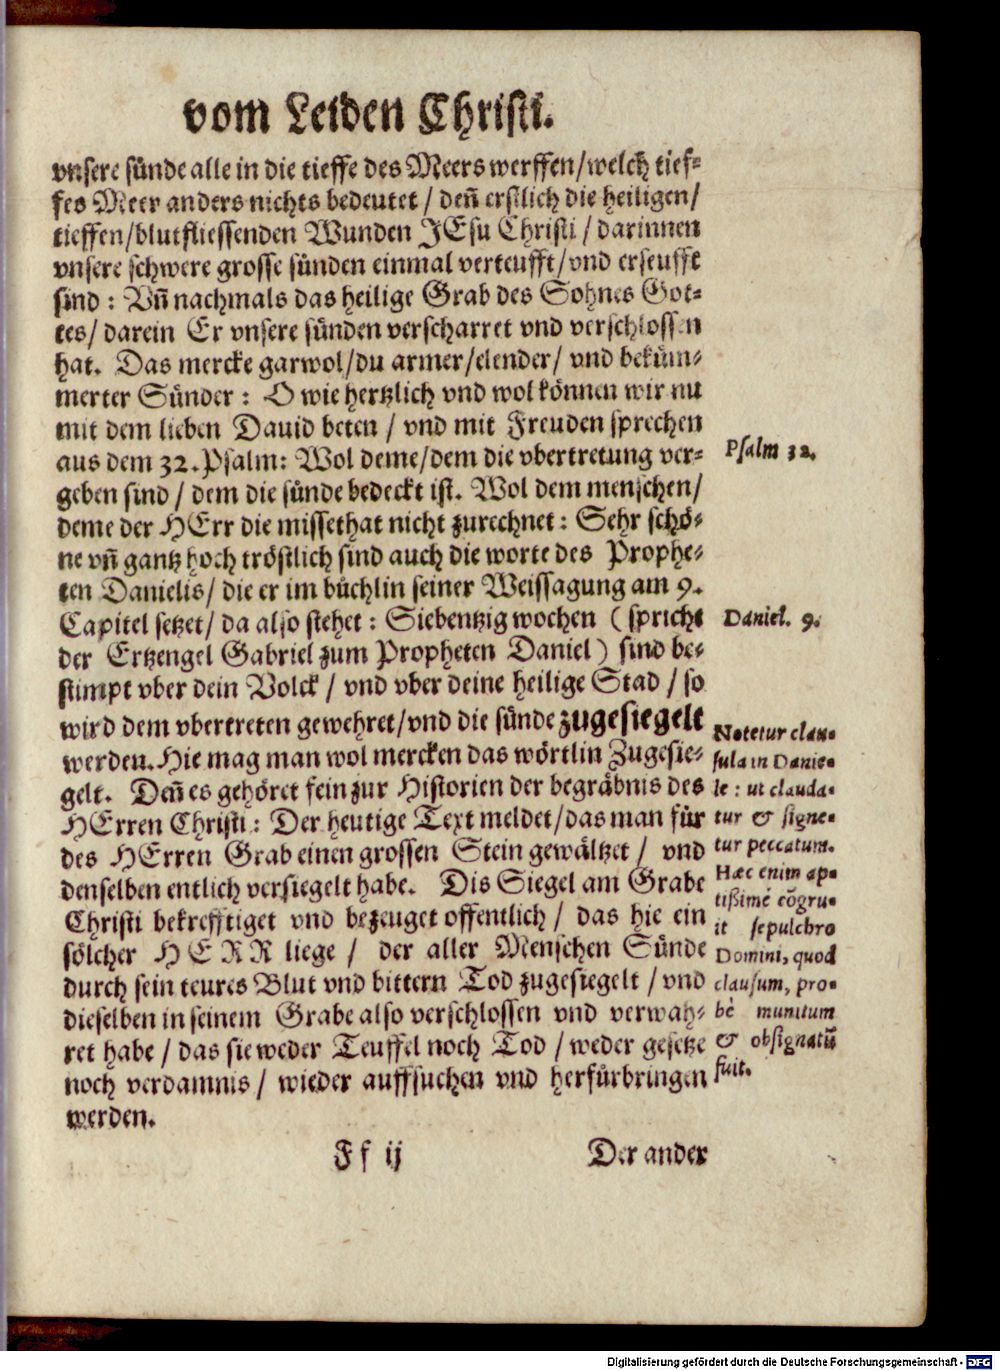 vom Leiden Christi.
vnsere sünde alle in die tieffe des Meers werffen/welch tief-
fes Meer anders nichts bedeutet / deñ erstlich die heiligen/
tieffen/blutfliessenden Wunden JEsu Christi / darinnen
vnsere schwere grosse sünden einmal verteufft/vnd erseufft
sind : Vñ nachmals das heilige Grab des Sohnes Got-
tes/ darein Er vnsere sünden verscharret vnd verschlossen
hat. Das mercke garwol/du armer/elender/ vnd beküm-
merter Sünder : O wie hertzlich vnd wol können wir nu
mit dem lieben Dauid beten / vnd mit Freuden sprechen
aus dem 32. Psalm: Wol deme/dem die vbertretung ver-
Psalm 32.
geben sind / dem die sünde bedeckt ist. Wol dem menschen/
deme der HErr die missethat nicht zurechnet : Sehr schö-
ne vñ gantz hoch tröstlich sind auch die worte des Prophe-
ten Danielis/ die er im büchlin seiner Weissagung am 9.
Capitel setzet/ da also stehet : Siebentzig wochen ( spricht
Daniel. 9.
der Ertzengel Gabriel zum Propheten Daniel ) sind be-
stimpt vber dein Volck / vnd vber deine heilige Stad / so
wird dem vbertreten gewehret/vnd die sünde zugesiegelt
werden. Hie mag man wol mercken das wörtlin Zugesie-
gelt. Deñ es gehöret fein zur Historien der begräbnis des
HErren Christi : Der heutige Text meldet/das man für
des HErren Grab einen grossen Stein gewältzet / vnd
denselben entlich versiegelt habe. Dis Siegel am Grabe
Christi bekrefftiget vnd bezeuget offentlich / das hie ein
sölcher HERR liege / der aller Menschen Sünde
durch sein teures Blut vnd bittern Tod zugesiegelt / vnd
dieselben in seinem Grabe also verschlossen vnd verwah-
ret habe / das sie weder Teuffel noch Tod / weder gesetze
noch verdamnis / wieder auffsuchen vnd herfürbringen
werden.
Notetur clau-
sula in Danie-
le : ut clauda-
tur & signe-
tur peccatum.
Hæc enim ap-
tißimè cõgru-
it sepulchro
Domini, quod
clausum, pro-
bè munitum
& obsignatũ
fuit.
Ff ij
Der ander
Digitalisierung gefördert durch die Deutsche Forschungsgemeinschaft - DFG